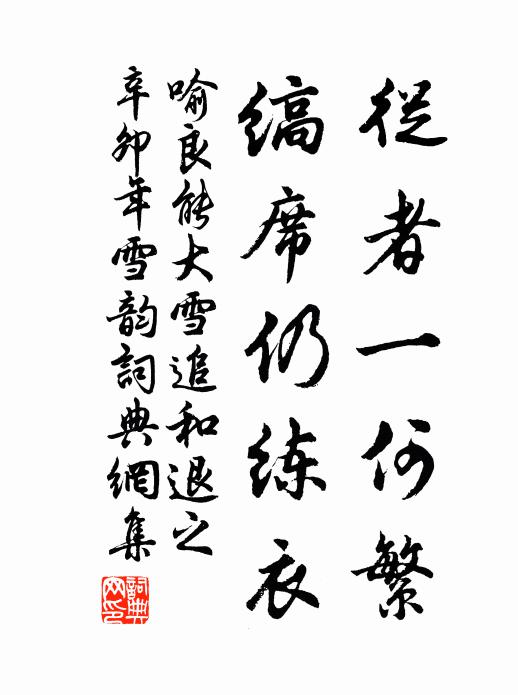 從者一何繁
縞席仍练衣
喻良能大雪追和退之
辛卯年雪韵詞典網集
詞典網印